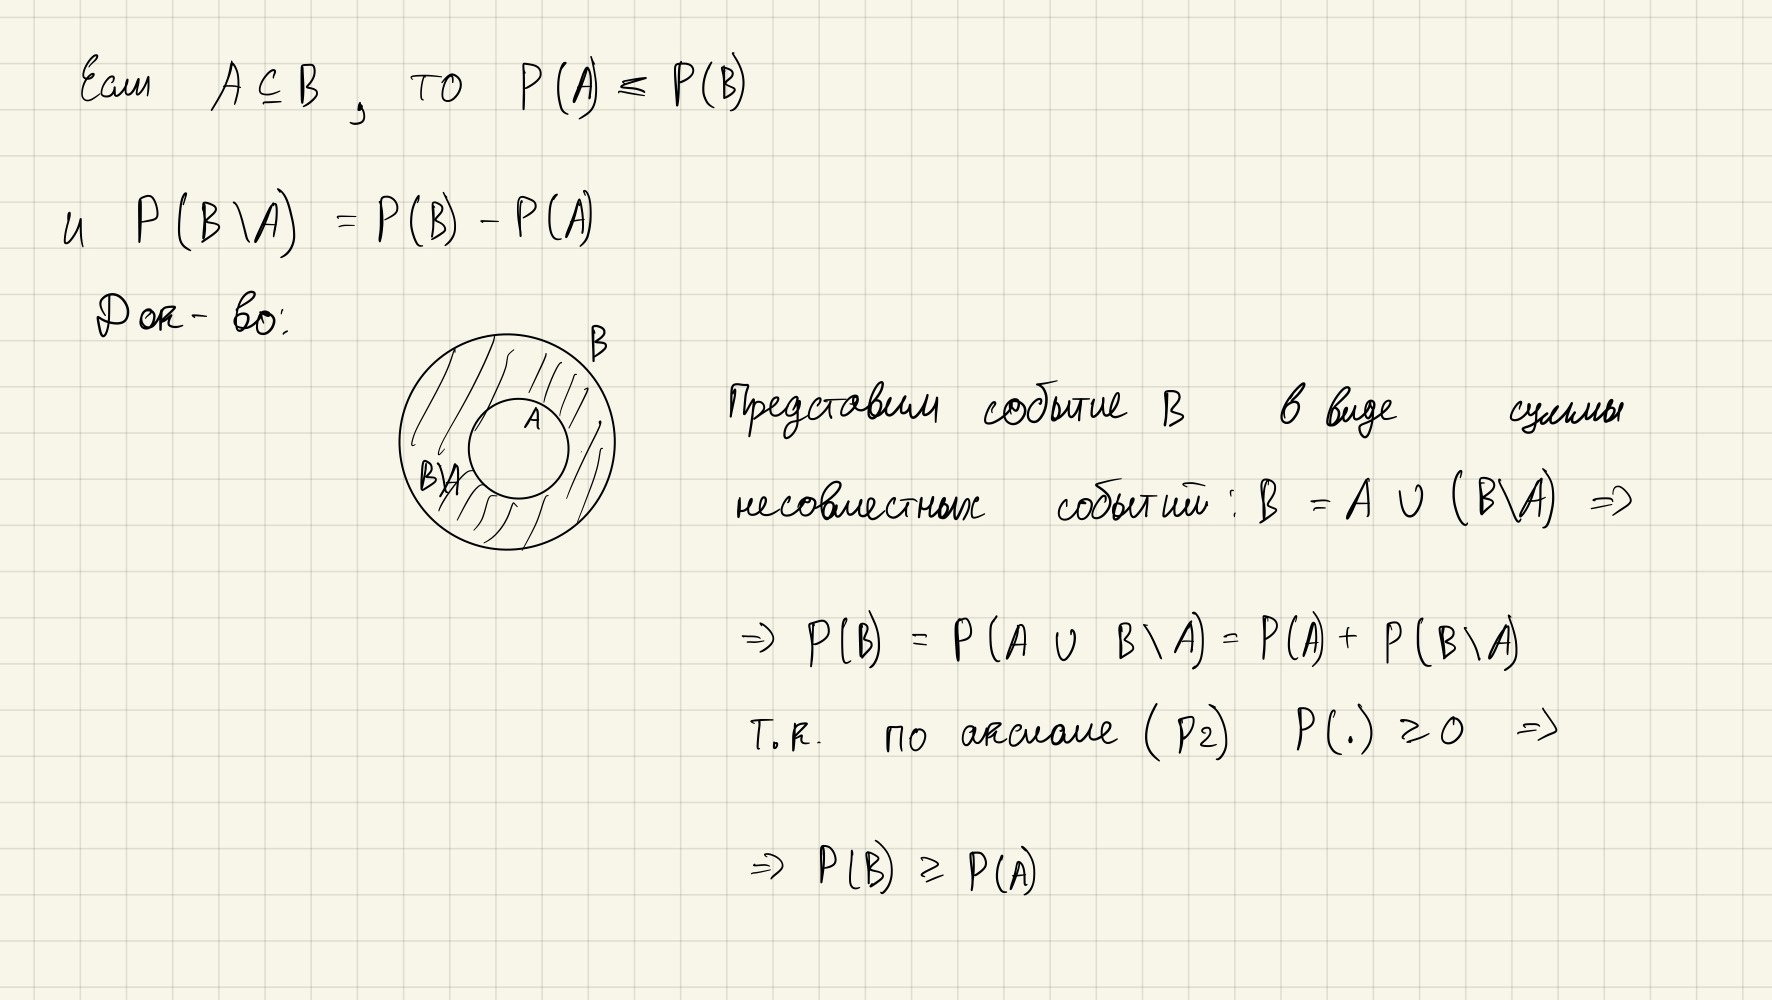 Если A ⊆ B, то P(A) ≤ P(B)
и P(B\A) = P(B) - P(A)
Док-во:
B
A
B\A
Представим событие B в виде суммы
несовместных событий: B = A ∪ (B\A) ⇒
⇒ P(B) = P(A ∪ B\A) = P(A) + P(B\A)
Т.к. по аксиоме (P2) P(.) ≥ 0 ⇒
⇒ P(B) ≥ P(A)